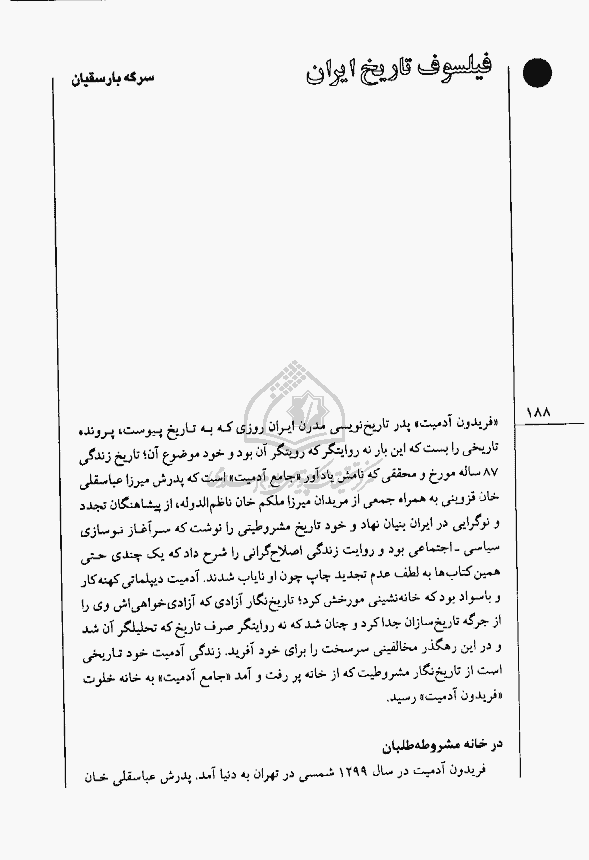 فیلسوف تاریخ ایران
سرگه بارسقیان
۱۸۸
«فریدون آدمیت» پدر تاریخ‌نویسی مدرن ایران روزی که به تاریخ پیوست، پرونده
تاریخی را بست که این بار نه روایتگر که رویتگر آن بود و خود موضوع آن؛ تاریخ زندگی
۸۷ ساله مورخ و محققی که نامش یادآور «جامع آدمیت» است که پدرش میرزا عباسقلی
خان قزوینی به همراه جمعی از مریدان میرزا ملکم خان ناظم‌الدوله، از پیشاهنگان تجدد
و نوگرایی در ایران بنیان نهاد و خود تاریخ مشروطیتی را نوشت که سرآغاز نوسازی
سیاسی ـ اجتماعی بود و روایت زندگی اصلاح‌گرانی را شرح داد که یک چندی حتی
همین کتاب‌ها به لطف عدم تجدید چاپ چون او نایاب شدند. آدمیت دیپلماتی کهنه‌کار
و باسواد بود که خانه‌نشینی مورخش کرد؛ تاریخ‌نگار آزادی که آزادی‌خواهی‌اش وی را
از جرگه تاریخ‌سازان جدا کرد و چنان شد که نه روایتگر صرف تاریخ که تحلیلگر آن شد
و در این رهگذر مخالفینی سرسخت را برای خود آفرید. زندگی آدمیت خود تاریخی
است از تاریخ‌نگار مشروطیت که از خانه پر رفت و آمد «جامع آدمیت» به خانه خلوت
«فریدون آدمیت» رسید.
در خانه مشروطه‌طلبان
فریدون آدمیت در سال ۱۲۹۹ شمسی در تهران به دنیا آمد. پدرش عباسقلی خان